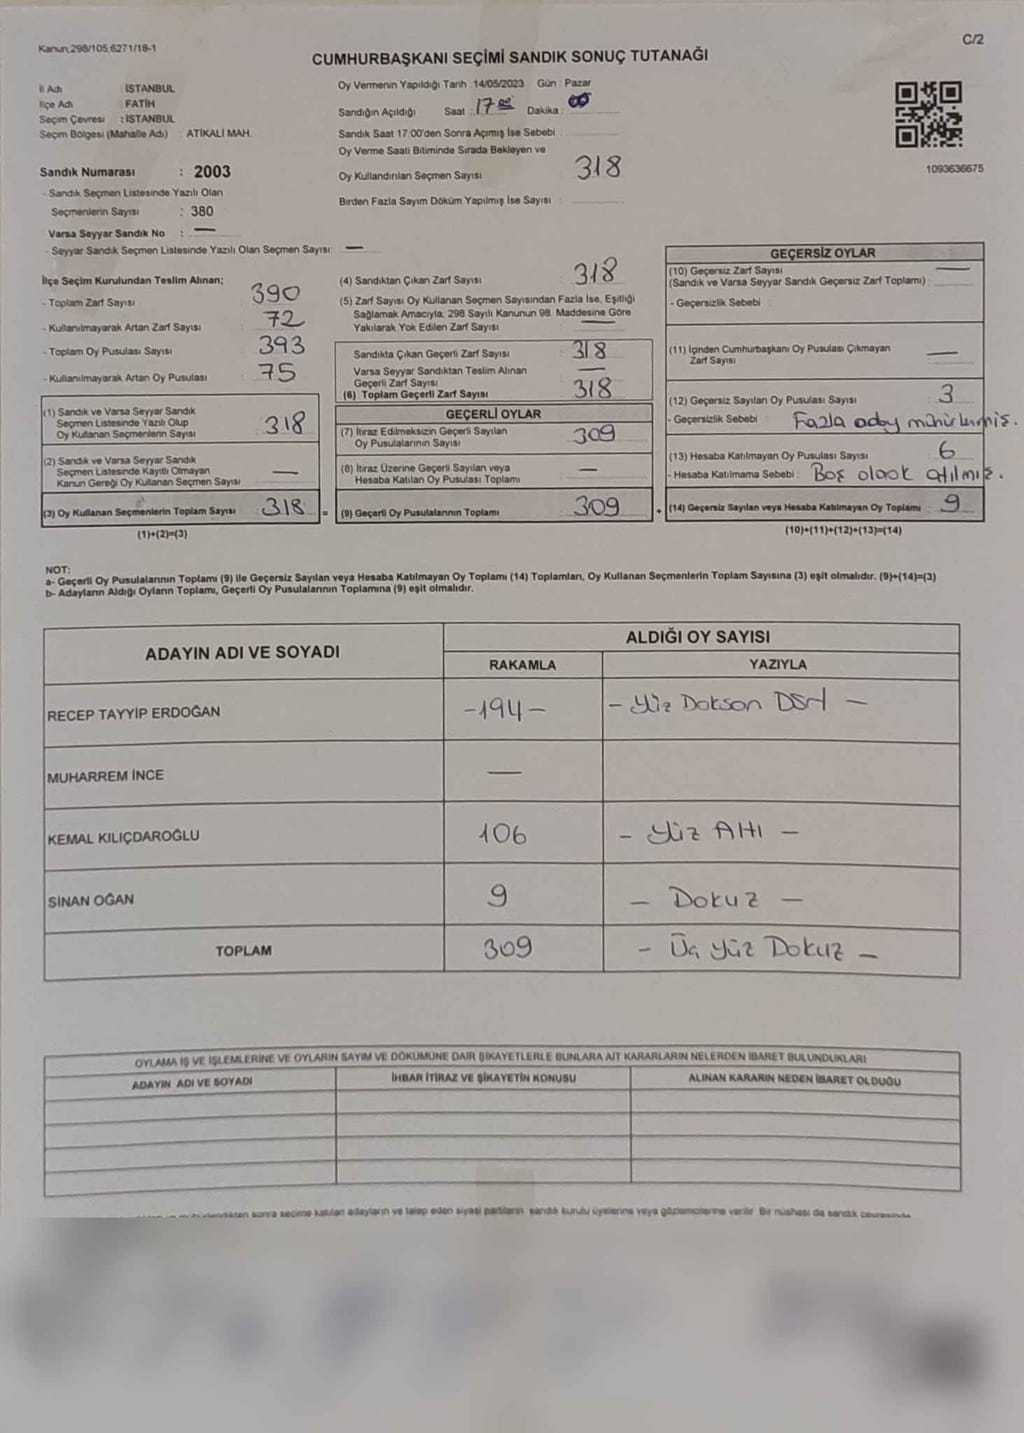 Kanun;298/105,6271/18-1
C/2
CUMHURBAŞKANI SEÇİMİ SANDIK SONUÇ TUTANAĞI
İl Adı : İSTANBUL
İlçe Adı : FATİH
Seçim Çevresi : İSTANBUL
Seçim Bölgesi (Mahalle Adı) : ATİKALİ MAH.
Oy Vermenin Yapıldığı Tarih : 14/05/2023 Gün : Pazar
Sandığın Açıldığı Saat : 17 Dakika :
Sandık Saat 17:00'den Sonra Açımış İse Sebebi :
Oy Verme Saati Bitiminde Sırada Bekleyen ve
Oy Kullandırılan Seçmen Sayısı 318
Birden Fazla Sayım Döküm Yapılmış İse Sayısı :
1093636675
Sandık Numarası : 2003
- Sandık Seçmen Listesinde Yazılı Olan
Seçmenlerin Sayısı : 380
Varsa Seyyar Sandık No : —
- Seyyar Sandık Seçmen Listesinde Yazılı Olan Seçmen Sayısı: —
İlçe Seçim Kurulundan Teslim Alınan;
- Toplam Zarf Sayısı : 390
- Kullanılmayarak Artan Zarf Sayısı : 72
- Toplam Oy Pusulası Sayısı : 393
- Kullanılmayarak Artan Oy Pusulası : 75
(1) Sandık ve Varsa Seyyar Sandık
Seçmen Listesinde Yazılı Olup
Oy Kullanan Seçmenlerin Sayısı : 318
(2) Sandık ve Varsa Seyyar Sandık
Seçmen Listesinde Kayıtlı Olmayan
Kanun Gereği Oy Kullanan Seçmen Sayısı —
(3) Oy Kullanan Seçmenlerin Toplam Sayısı 318 =
(1)+(2)=(3)
(4) Sandıktan Çıkan Zarf Sayısı 318
(5) Zarf Sayısı Oy Kullanan Seçmen Sayısından Fazla İse, Eşitliği
Sağlamak Amacıyla, 298 Sayılı Kanunun 98. Maddesine Göre
Yakılarak Yok Edilen Zarf Sayısı —
Sandıkta Çıkan Geçerli Zarf Sayısı 318
Varsa Seyyar Sandıktan Teslim Alınan
Geçerli Zarf Sayısı —
(6) Toplam Geçerli Zarf Sayısı 318
GEÇERLİ OYLAR
(7) İtiraz Edilmeksizin Geçerli Sayılan
Oy Pusulalarının Sayısı 309
(8) İtiraz Üzerine Geçerli Sayılan veya
Hesaba Katılan Oy Pusulası Toplamı —
(9) Geçerli Oy Pusulalarının Toplamı 309 +
GEÇERSİZ OYLAR
(10) Geçersiz Zarf Sayısı —
(Sandık ve Varsa Seyyar Sandık Geçersiz Zarf Toplamı) :
- Geçersizlik Sebebi :
(11) İçinden Cumhurbaşkanı Oy Pusulası Çıkmayan
Zarf Sayısı —
(12) Geçersiz Sayılan Oy Pusulası Sayısı 3
- Geçersizlik Sebebi : Fazla aday mühürlenmiş.
(13) Hesaba Katılmayan Oy Pusulası Sayısı 6
- Hesaba Katılmama Sebebi : Boş olarak atılmış.
(14) Geçersiz Sayılan veya Hesaba Katılmayan Oy Toplamı : 9
(10)+(11)+(12)+(13)=(14)
NOT:
a- Geçerli Oy Pusulalarının Toplamı (9) ile Geçersiz Sayılan veya Hesaba Katılmayan Oy Toplamı (14) Toplamları, Oy Kullanan Seçmenlerin Toplam Sayısına (3) eşit olmalıdır. (9)+(14)=(3)
b- Adayların Aldığı Oyların Toplamı, Geçerli Oy Pusulalarının Toplamına (9) eşit olmalıdır.
ADAYIN ADI VE SOYADI ALDIĞI OY SAYISI
RAKAMLA YAZIYLA
RECEP TAYYİP ERDOĞAN -194- - Yüz Doksan Dört -
MUHARREM İNCE —
KEMAL KILIÇDAROĞLU 106 - Yüz Altı -
SİNAN OĞAN 9 - Dokuz -
TOPLAM 309 - Üç Yüz Dokuz -
OYLAMA İŞ VE İŞLEMLERİNE VE OYLARIN SAYIM VE DÖKÜMÜNE DAİR ŞİKAYETLERLE BUNLARA AİT KARARLARIN NELERDEN İBARET BULUNDUKLARI
ADAYIN ADI VE SOYADI İHBAR İTİRAZ VE ŞİKAYETİN KONUSU ALINAN KARARIN NEDEN İBARET OLDUĞU
sonra seçime katılan adayların ve talep eden siyasi partilerin sandık kurulu üyelerine veya gözlemcilerine verilir. Bir nüshası da sandık